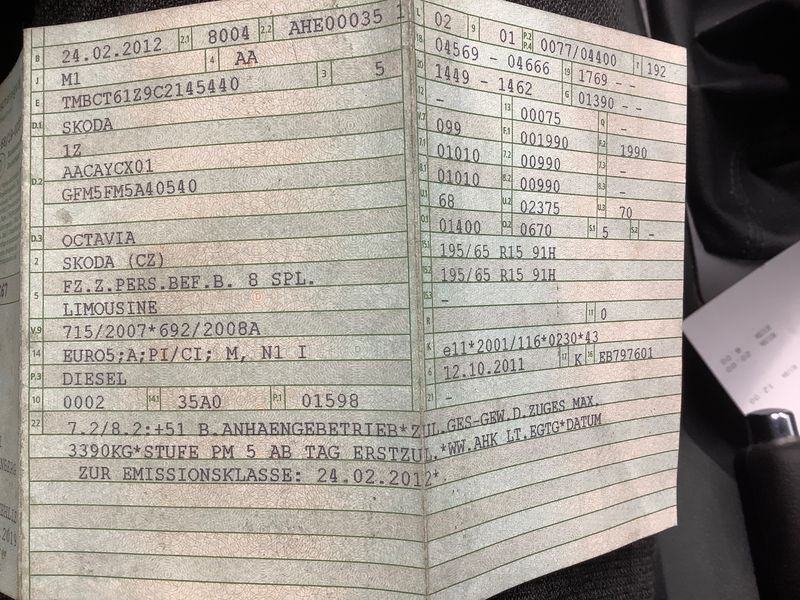 B 24.02.2012 2.1 8004 2.2 AHE00035 1
J M1 4 AA
E TMBCT61Z9C2145440 3 5
D.1 SKODA
1Z
D.2 AACAYCX01
GFM5FM5A40540
D.3 OCTAVIA
2 SKODA (CZ)
5 FZ.Z.PERS.BEF.B. 8 SPL.
LIMOUSINE
V.9 715/2007*692/2008A
14 EURO5;A;PI/CI; M, N1 I
P.3 DIESEL
10 0002 14.1 35A0 P.1 01598
02 9 01 P.2 P.4 0077/04400 T 192
18 04569 - 04666 19 1769 - -
20 1449 - 1462 G 01390 - -
12 - 13 00075 Q -
V.7 099 F.1 001990 F.2 1990
7.1 01010 7.2 00990 7.3 -
8.1 01010 8.2 00990 8.3 -
U.1 68 U.2 02375 U.3 70
O.1 01400 O.2 0670 S.1 5 S.2 -
15.1 195/65 R15 91H
15.2 195/65 R15 91H
15.3 -
R 11 0
K e11*2001/116*0230*43
6 12.10.2011 17 K 16 EB797601
21 -
22 7.2/8.2:+51 B.ANHAENGEBETRIEB*ZUL.GES-GEW.D.ZUGES MAX.
3390KG*STUFE PM 5 AB TAG ERSTZUL.*WW.AHK LT.EGTG*DATUM
ZUR EMISSIONSKLASSE: 24.02.2012*